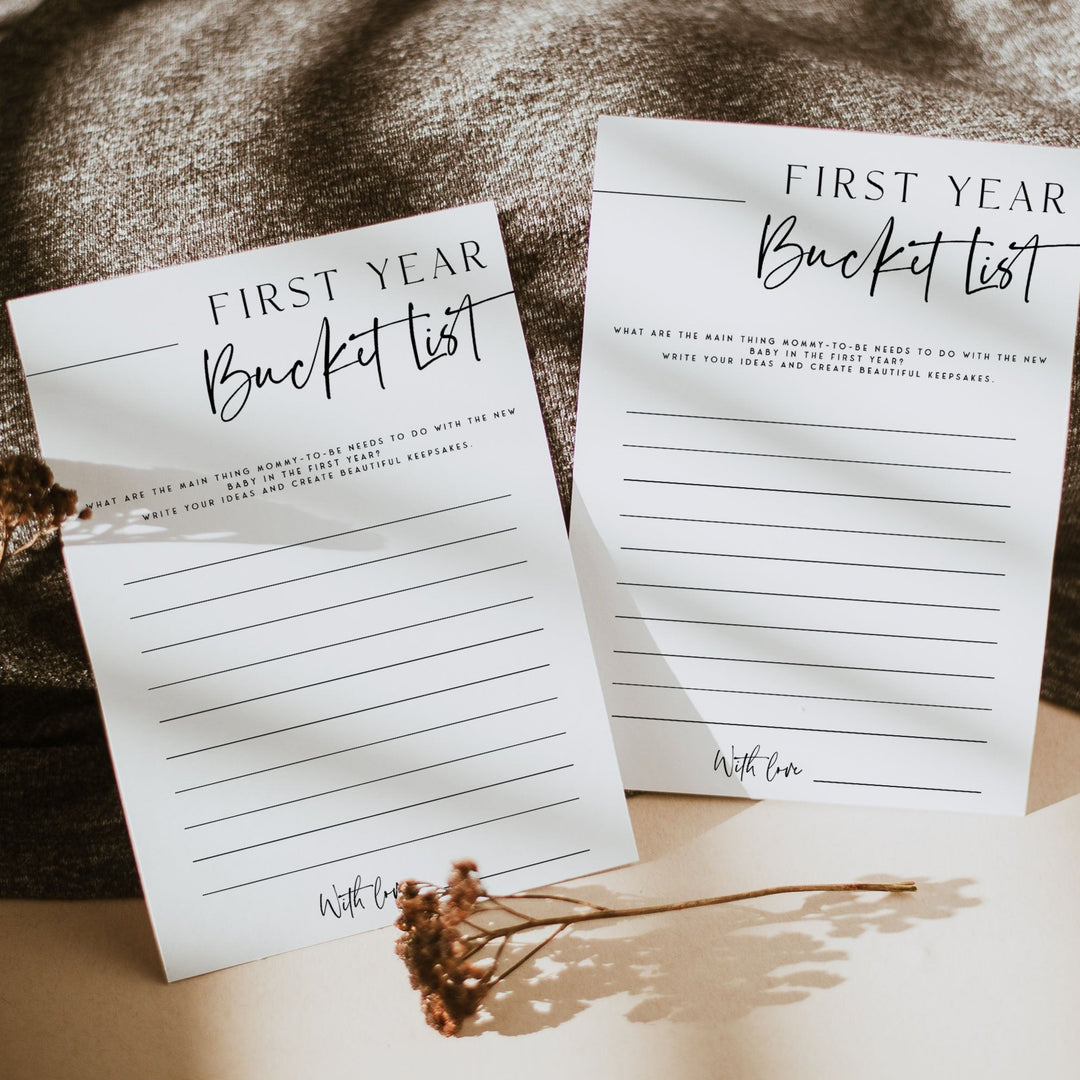 FIRST YEAR
Bucket List
WHAT ARE THE MAIN THING MOMMY-TO-BE NEEDS TO DO WITH THE NEW
BABY IN THE FIRST YEAR?
WRITE YOUR IDEAS AND CREATE BEAUTIFUL KEEPSAKES.
With love
FIRST YEAR
Bucket List
WHAT ARE THE MAIN THING MOMMY-TO-BE NEEDS TO DO WITH THE NEW
BABY IN THE FIRST YEAR?
WRITE YOUR IDEAS AND CREATE BEAUTIFUL KEEPSAKES.
With love